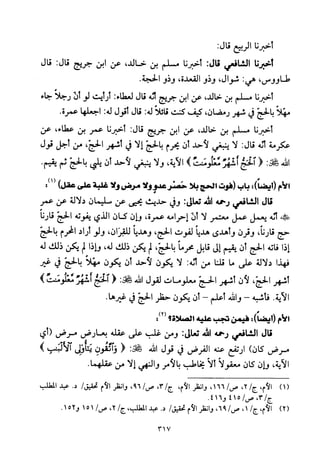 أخبرنا الربيع قال:
أخبرنا الشافعي قال: أخبرنا مسلم بن خالد، عن ابن جريج قال: قال
طاووس، هي: شوال، وذو القعدة، وذو الحجة.
أخبرنا مسلم بن خالد، عن ابن جريج أنه قال لعطاء: أرأيت لو أنّ رجلاً جاء
مهلاً بالحج في شهر رمضان، كيف كنت قائلاً له: قال أقول له: اجعلها عمرة.
أخبرنا مسلم بن خالد، عن ابن جريج قال: أخبرنا عمر بن عطاء، عن
عكرمة أنه قال: لا ينبغي لأحد أن يحرم بالحجّ إلا في أشهر الحجّ، من أجل قول
الله ﷻ: ﴿ الْحَجُّ أَشْهُرٌ مَّعْلُومَاتٌ ﴾ الآية، ولا ينبغي لأحد أن يلبي بالحجّ ثم يقيم.
الأم (أيضاً)، باب (فوت الحج بلا حصر عدو ولا مرض ولا غلبة على عقل) (١):
قال الشافعي رحمه الله تعالى: وفي حديث يحيى عن سليمان دلالة عن عمر
ﷺ أنه يعمل عمل معتمر لا أنّ إحرامه عمرة، وإن كان الذي يفوته الحج قارناً
حج قارناً، وقرن وأهدى هدياً لفوت الحج، وهدياً للقران، ولو أراد المحرم بالحجّ
إذا فاته الحج أن يقيم إلى قابل محرماً بالحجّ، لم يكن ذلك له، وإذا لم يكن ذلك له
فهذا دلالة على ما قلنا من أنه: لا يكون لأحد أن يكون مهلاً بالحجّ في غير
أشهر الحجّ، لأن أشهر الحج معلومات لقول الله ﷻ: ﴿ الْحَجُّ أَشْهُرٌ مَّعْلُومَاتٌ ﴾
الآية. فأشبه – والله أعلم – أن يكون حظر الحج في غيرها.
الأم (أيضاً)، فيمن تجب عليه الصلاة (٢):
قال الشافعي رحمه الله تعالى: ومن غلب على عقله بعارض مرض (أي
مرض كان) ارتفع عنه الفرض في قول الله ﷻ: ﴿ وَاتَّقُونِ يَا أُولِي الْأَلْبَابِ ﴾
الآية، وإن كان معقولاً ألاّ يخاطب بالأمر والنهي إلا من عقلهما.
(١) الأم، ج/ ٢، ص/ ١٦٦، وانظر الأم، ج/ ٣، ص/ ٩٦، وانظر الأم تحقيق/ د. عبد المطلب
ج/ ٣، ص/ ٤١٥ و٤١٦.
(٢) الأم، ج/ ١، ص/ ٦٩، وانظر الأم تحقيق/ د. عبد المطلب، ج/ ٢، ص/ ١٥١ و١٥٢.
٣١٧